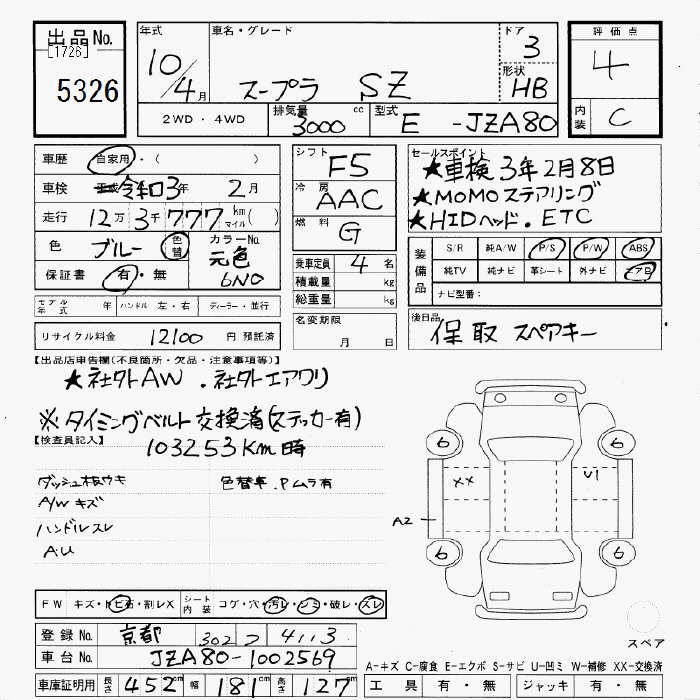 出品No.
[1726]
5326
年式
10/4月
車名・グレード
スープラ SZ
ドア
3
形状
HB
2WD・4WD
排気量
3000
cc
型式
E -JZA80
評価点
4
内装
C
車歴
自家用・( )
車検
平成 令和3年 2月
走行
12万3千777km マイル( )
色
ブルー
色替
カラーNo.
元色
6N0
保証書
有・無
モデル年式
年
ハンドル
左・右
ディーラー・並行
リサイクル料金
12100
円 預託済
シフト
F5
冷房
AAC
燃料
G
乗車定員
4
名
積載量
kg
総重量
kg
名変期限
月 日
セールスポイント
★車検3年2月8日
★MOMOステアリング
★HIDヘッド. ETC
装備品
S/R 純A/W P/S P/W ABS
純TV 純ナビ 革シート 外ナビ エアB
ナビ型番:
後日品
保取 スペアキー
【出品店申告欄(不良箇所・欠品・注意事項等)】
★社外AW .社外エアクリ
※タイミングベルト交換済(ステッカー有)
【検査員記入】
103253Km時
ダッシュ板ウキ
色替車.Pムラ有
A/Wキズ
ハンドルスレ
A.U
6
6
XX
U1
A2
6
6
FW
キズ・トビ石・割レX
シート内装
コゲ・穴・汚レ・シミ・破レ・スレ
登録No.
京都 302 つ 4113
車台No.
JZA80-1002569
車庫証明用
長さ
452
cm
幅
181
cm
高さ
127
cm
スペア
A-キズ C-腐食 E-エクボ S-サビ U-凹ミ W-補修 XX-交換済
工具
有・無
ジャッキ
有・無